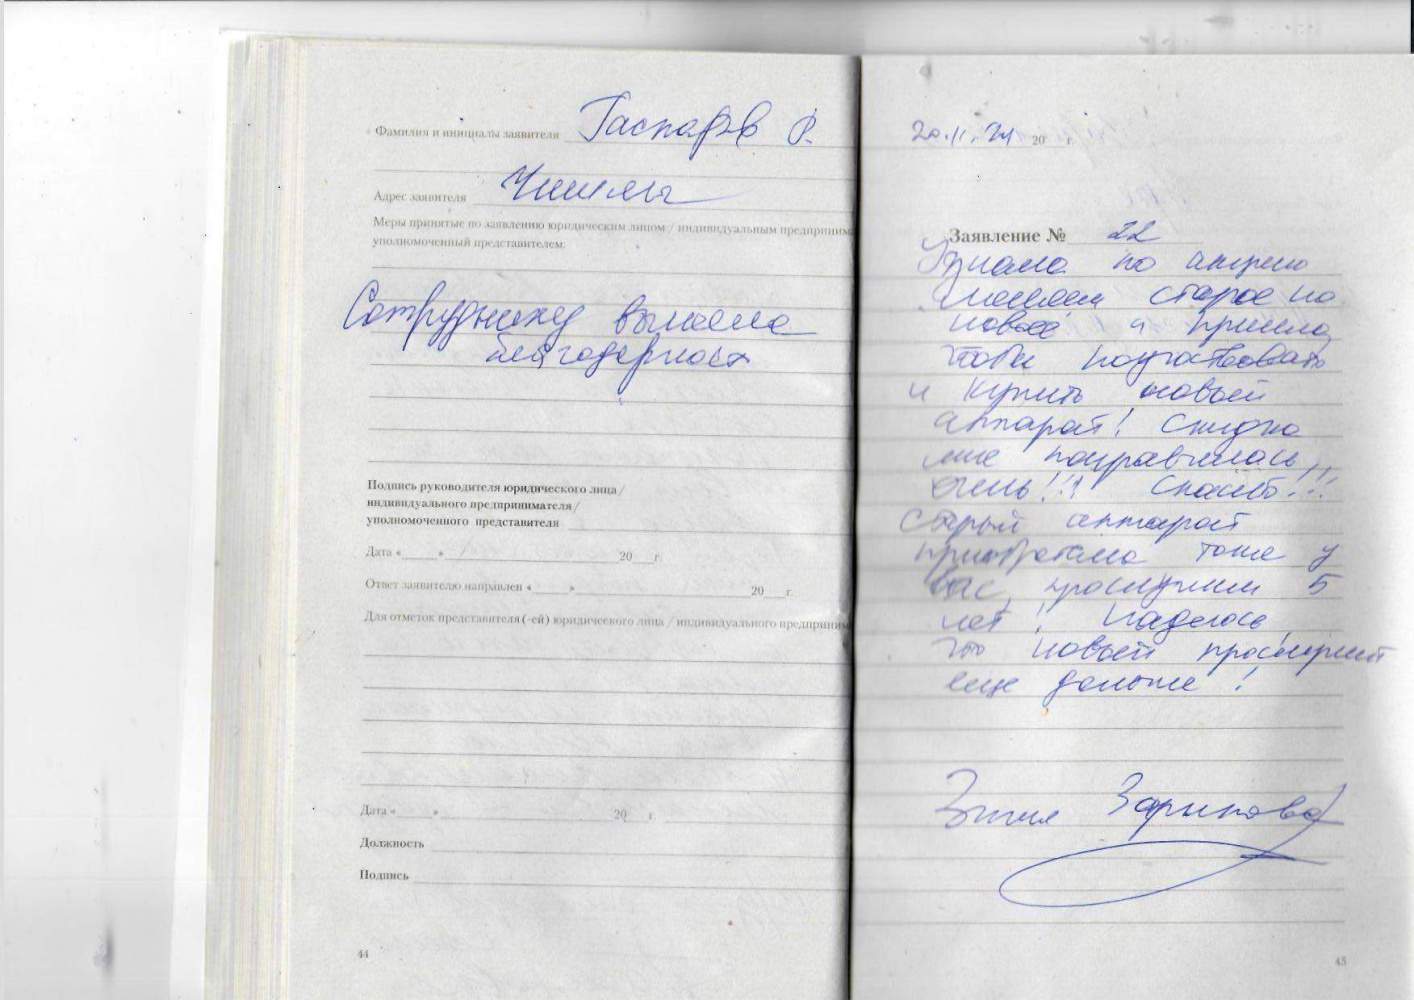 Фамилия и инициалы заявителя Гаспаров Р.
Адрес заявителя Чишмы
Меры принятые по заявлению юридическим лицом / индивидуальным предприним
уполномоченный представителем:
Сотруднику вынесена
благодарность
Подпись руководителя юридического лица/
индивидуального предпринимателя/
уполномоченного представителя
Дата «______» 20___г.
Ответ заявителю направлен «______» 20___г.
Для отметок представителя(-ей) юридического лица / индивидуального предприним
Дата «______» 20___г.
Должность
Подпись
44
20.11.21 20 г.
Заявление № 22
Узнала по акцию
меняем старое на
новое и пришла,
чтобы поучаствовать
и купить новый
аппарат! Скидка
мне понравилась
очень!!! Спасибо!!!
Старый аппарат
приобретала тоже у
вас, прослужил 5
лет! Надеюсь,
что новый прослужит
еще дольше!
Зарипова
45